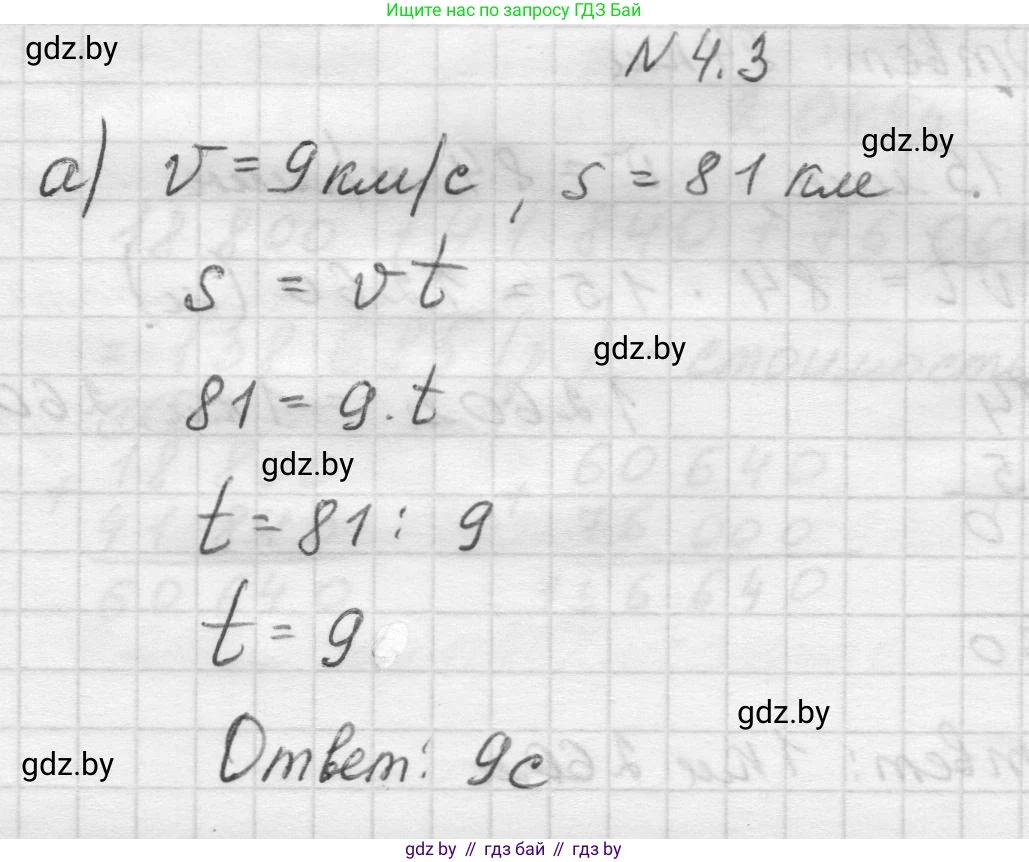 Ищите нас по запросу ГДЗ Бай
gdz.by
N 4.3
gdz.by
а) v = 9 км/с, s = 81 км
s = vt
gdz.by
81 = 9 · t
gdz.by
t = 81 : 9
t = 9
gdz.by
gdz.by
Ответ: 9с
gdz.by // гдз бай // гдз by